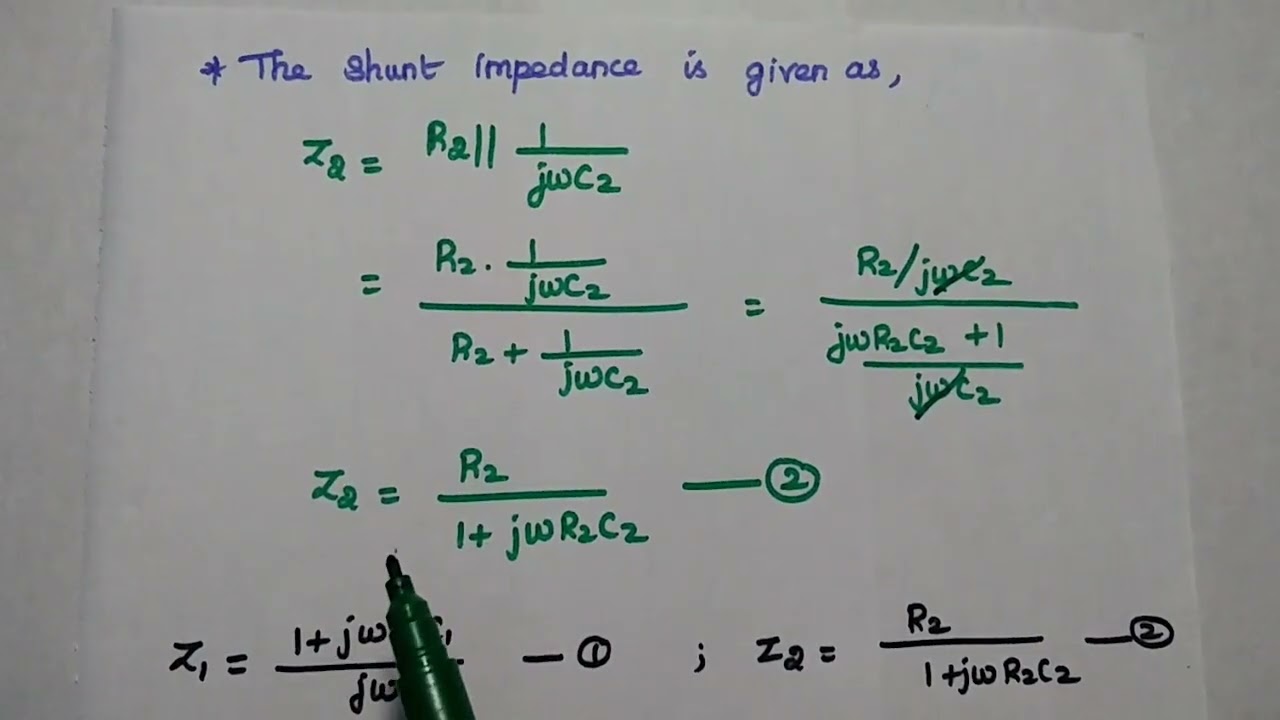 * The shunt impedance is given as,
Z2 = R2 || 1/jωC2
= (R2 . 1/jωC2)/(R2 + 1/jωC2) = (R2/jωC2)/((jωR2C2 + 1)/jωC2)
Z2 = R2/(1 + jωR2C2) — ②
Z1 = (1 + jω)/(jω) — ① ; Z2 = R2/(1 + jωR2C2) — ②